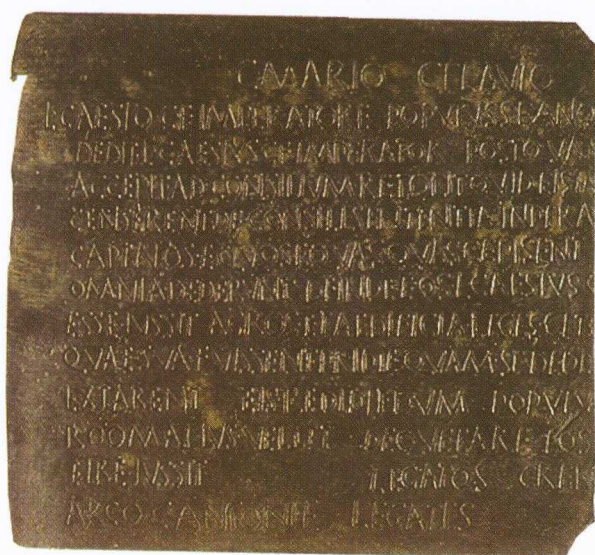 C MARIO C FLAVIO
L CAESIO C F IMPERATORE POPVLVS SEANO
DEDIT L CAESIVS C F IMPERATOR POSTQVAM
ACCEPIT AD CONSILIVM RETOLIT QVID EIS IM
CENSERENT DE CONSILI SENTENTIA INPERA
CAPTIVOS EQVOS EQVAS QVAS CEPISENT
OMNIA DEDERVNT DEINDE EOS L CAESIVS C
ESSE IVSSIT AGROS ET AEDIFICIA LEGES CETE
QVAE SVA FVISSENT PRIDIE QVAM SE DEDID
EXTARENT EIS REDIDIT DVM POPVLV
ROOMANVS VELLET DEQVE EA RE EOS
EIRE IVSSIT LEGATOS CREN
ARCO CANTONI F LEGATES